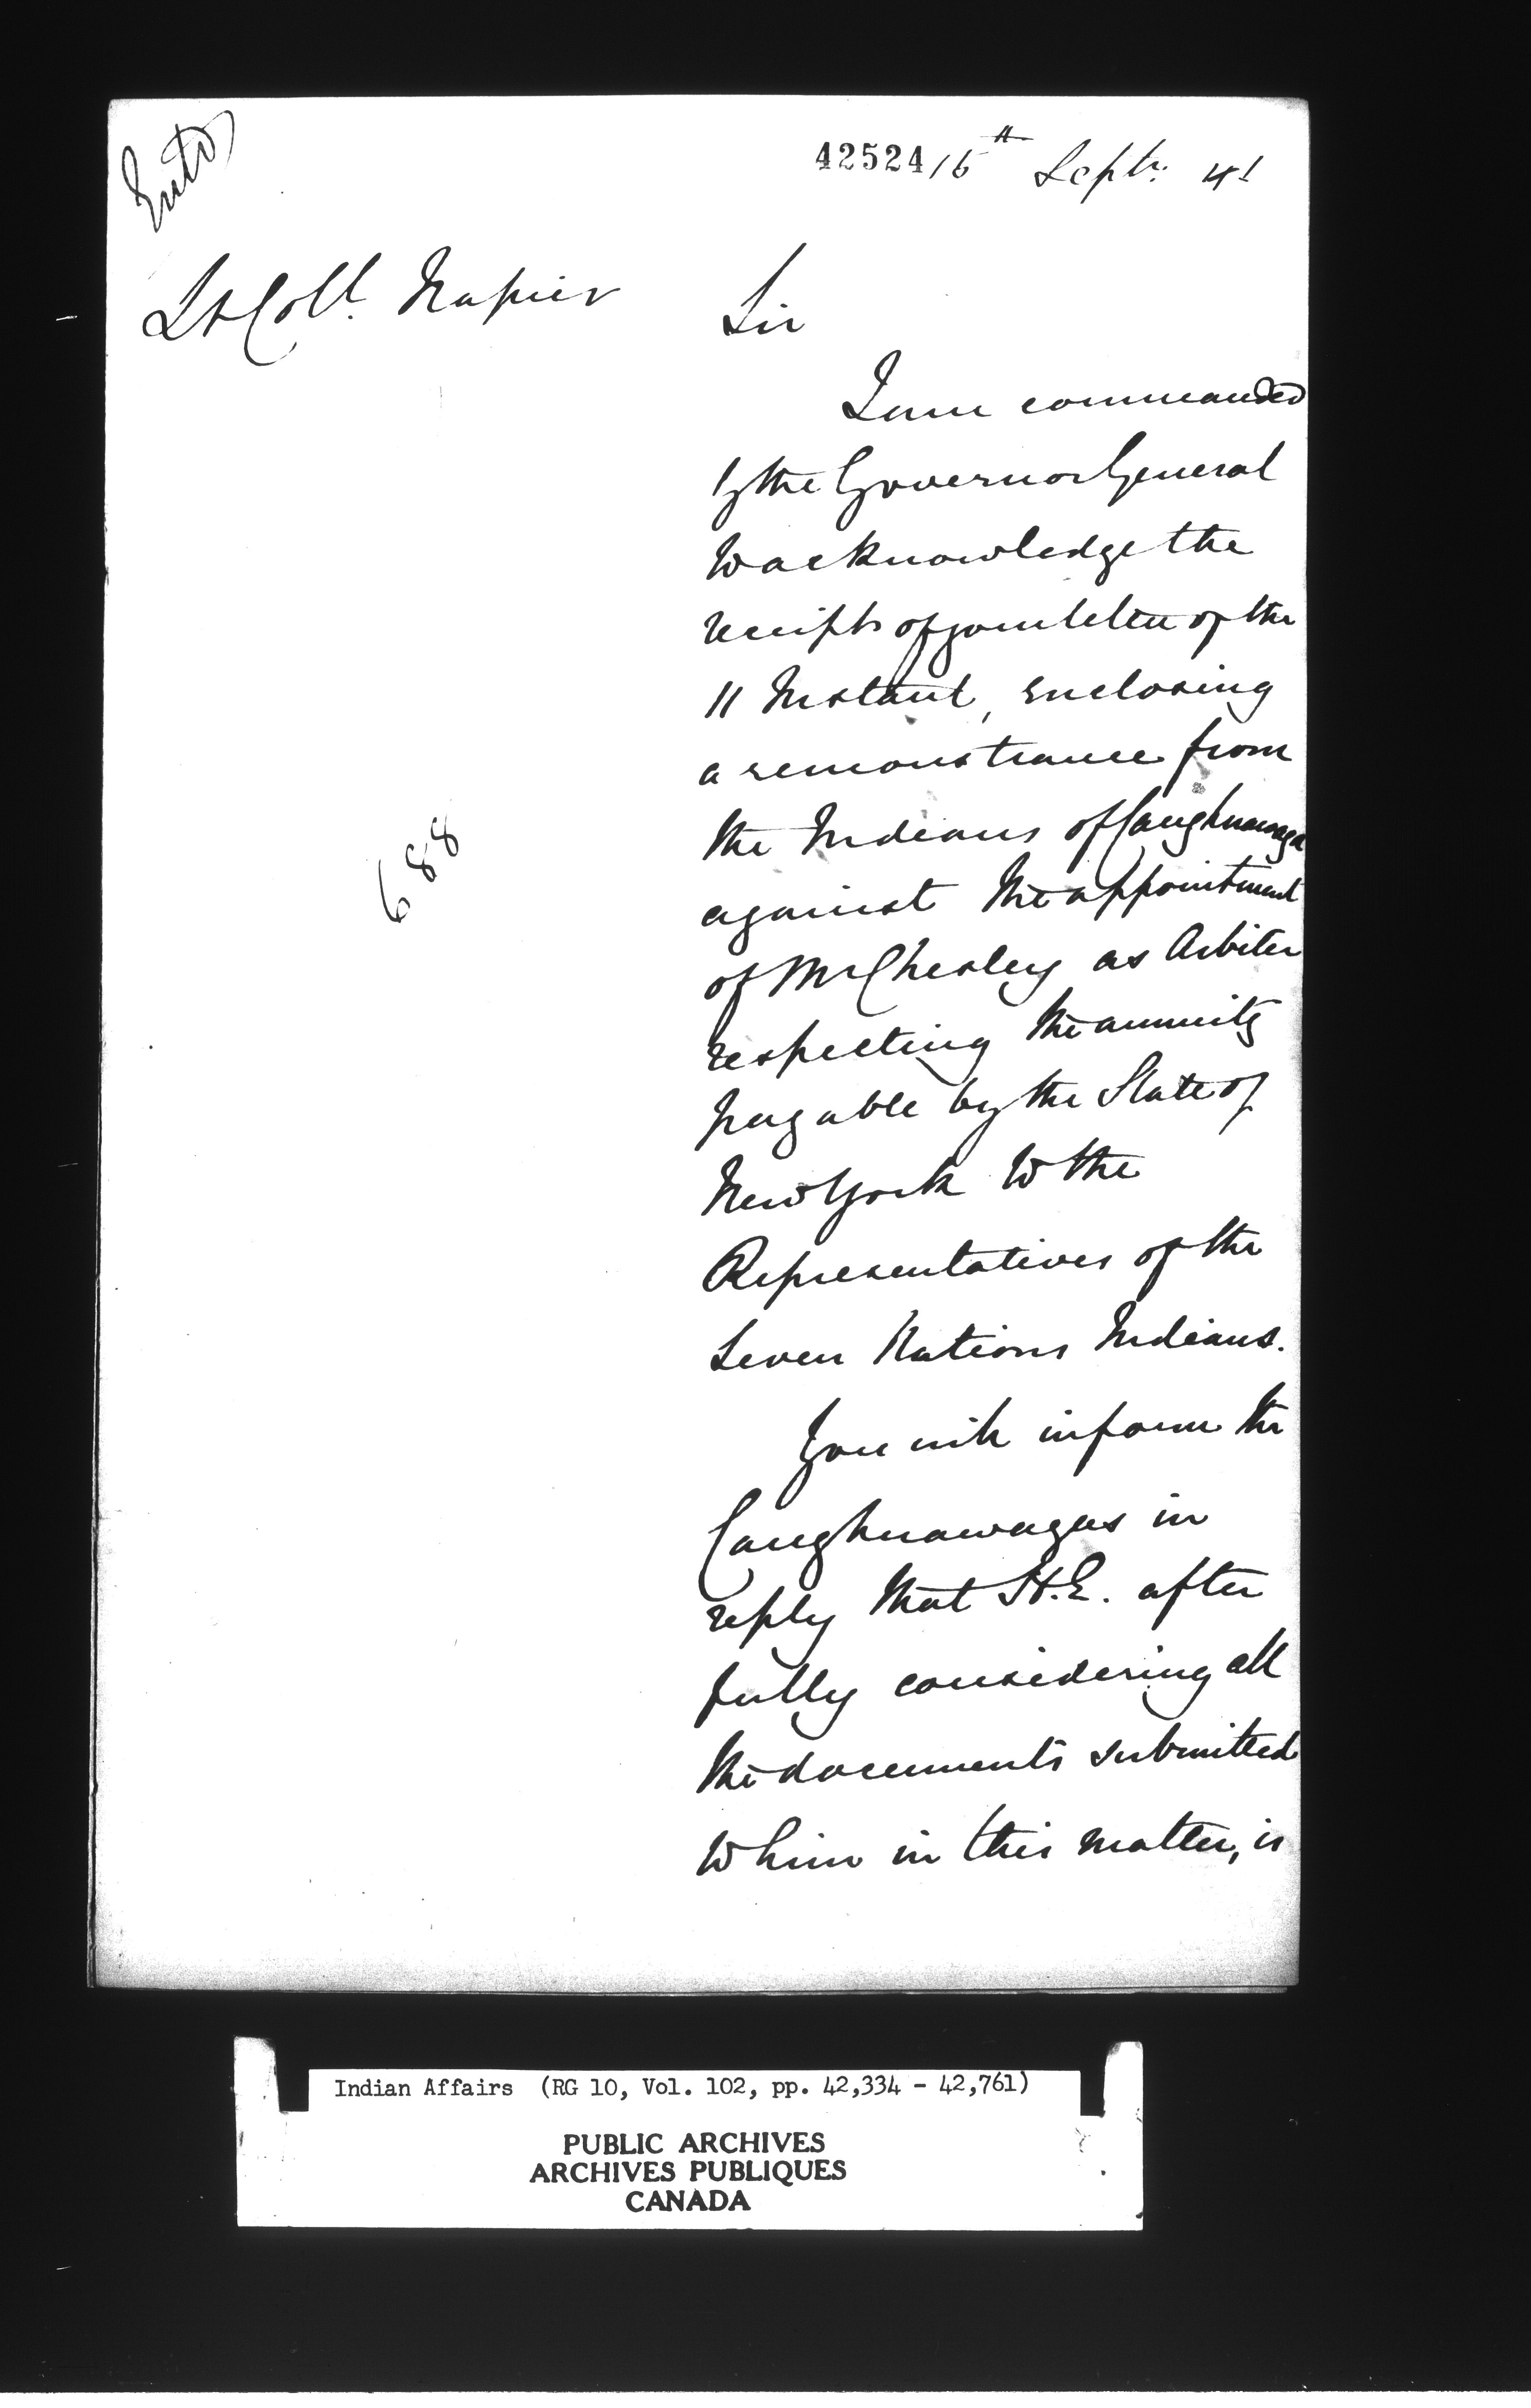 Entd
42524
15th Septr. 41
Lt Coll. Napier
Sir
I am commanded
by the Governor General
to acknowledge the
receipt of your letter of the
11 Instant, enclosing
a remonstrance from
the Indians of Caughnawaga
against the appointment
of Mr Chesley as Arbiter
respecting the annuity
payable by the State of
New York to the
Representatives of the
Seven Nations Indians.
688
You will inform the
Caughnawagas in
reply that H.E. after
fully considering all
the documents submitted
to him in this matter, is
Indian Affairs (RG 10, Vol. 102, pp. 42,334 - 42,761)
PUBLIC ARCHIVES
ARCHIVES PUBLIQUES
CANADA